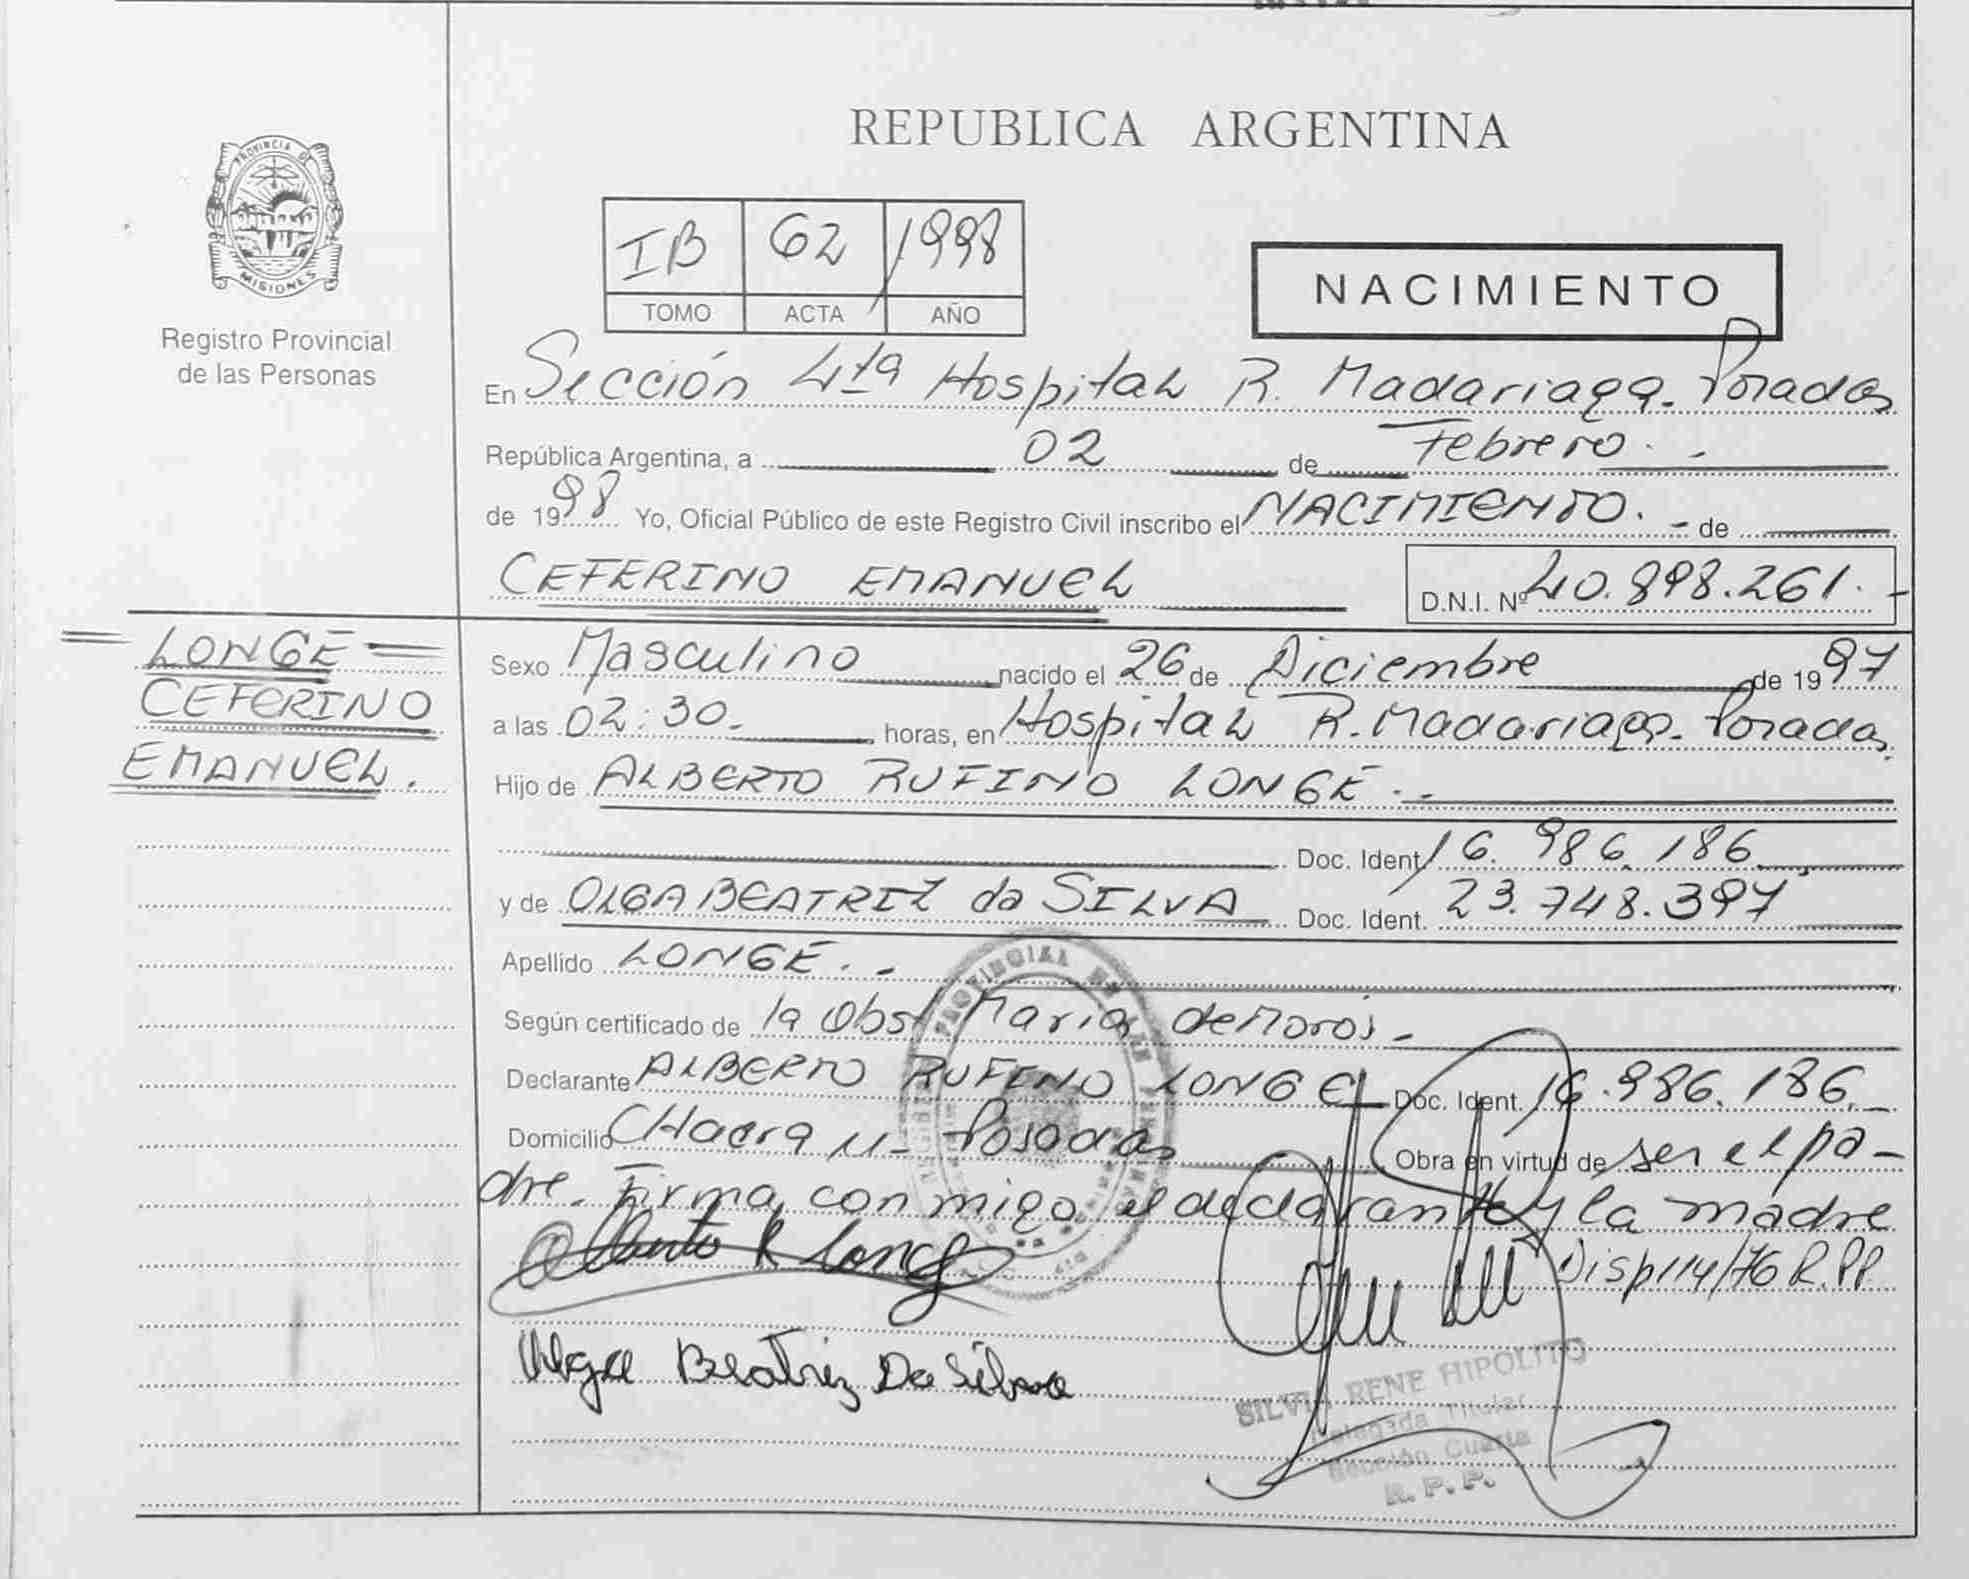 REPUBLICA ARGENTINA
PROVINCIA DE
MISIONES
Registro Provincial
de las Personas
IB 62 1998
TOMO ACTA AÑO
NACIMIENTO
En Sección 4ta Hospital R. Madariaga. Posadas
República Argentina, a 02 de Febrero. -
de 1998 Yo, Oficial Público de este Registro Civil inscribo el NACIMIENTO. - de
CEFERINO EMANUEL D.N.I. Nº 40.898.261. -
LONGE
CEFERINO
EMANUEL.
Sexo Masculino nacido el 26 de Diciembre de 1997
a las 02:30. horas, en Hospital R. Madariaga. Posadas.
Hijo de ALBERTO RUFINO LONGE. -
Doc. Ident. 16.986.186
y de OLGA BEATRIZ da SILVA Doc. Ident. 23.748.397
Apellido LONGE. -
Según certificado de la Obst Maria de
Declarante ALBERTO RUFINO LONGE Doc. Ident. 16.986.186. -
Domicilio CHacra 11- Posadas Obra en virtud de ser el pa-
dre. Firma conmigo el declarante y la madre
Alberto R Longe Disp 114/76 R.PP.
Olga Beatriz Da Silva
SILVIA RENE HIPOLITO
Delegada Titular
Sección Cuarta
R. P. P.